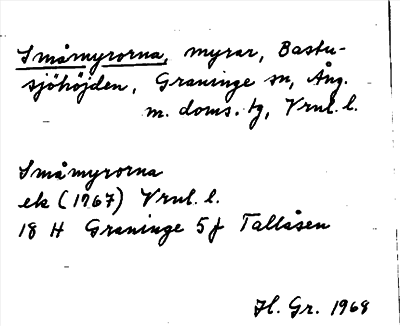 Småmyrorna, myrar, Bastu-
sjöhöjden, Graninge sn, Ång.
m. doms. tg, Vrnl. l.
Småmyrorna
ek (1967) Vrnl. l.
18 H Graninge 5 f Tallåsen
H. Gr. 1968